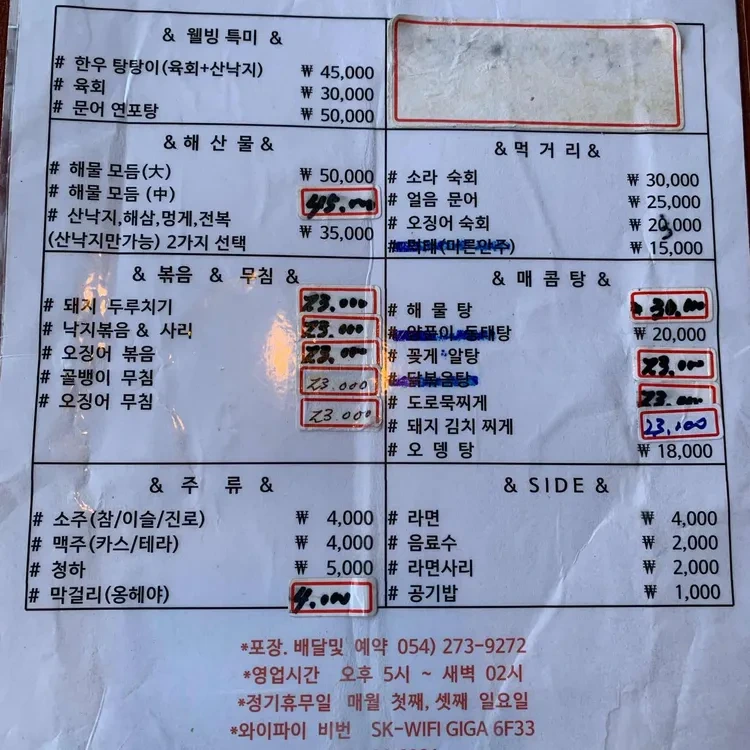 & 웰빙 특미 &
# 한우 탕탕이(육회+산낙지) ₩ 45,000
# 육회 ₩ 30,000
# 문어 연포탕 ₩ 50,000
& 해 산 물 &
# 해물 모듬(大) ₩ 50,000
# 해물 모듬 (中) 45.000
# 산낙지,해삼,멍게,전복 ₩ 35,000
(산낙지만가능) 2가지 선택
& 먹 거 리 &
# 소라 숙회 ₩ 30,000
# 얼음 문어 ₩ 25,000
# 오징어 숙회 ₩
# 먹태(마른안주) ₩ 15,000
& 볶음 & 무침 &
# 돼지 두루치기 23.000
# 낙지볶음 & 사리 23.000
# 오징어 볶음 23.000
# 골뱅이 무침 23.000
# 오징어 무침 23.000
& 매 콤 탕 &
# 해 물 탕 30.000
# 동태탕 ₩ 20,000
# 꽃게 알탕 23.000
# 닭볶음탕
# 도로묵찌게 23.000
# 돼지 김치 찌게 23.000
# 오 뎅 탕 ₩ 18,000
& 주 류 &
# 소주(참/이슬/진로) ₩ 4,000
# 맥주(카스/테라) ₩ 4,000
# 청하 ₩ 5,000
# 막걸리(옹헤야) 4.000
& SIDE &
# 라면 ₩ 4,000
# 음료수 ₩ 2,000
# 라면사리 ₩ 2,000
# 공기밥 ₩ 1,000
*포장. 배달및 예약 054) 273-9272
*영업시간 오후 5시 ~ 새벽 02시
*정기휴무일 매월 첫째, 셋째 일요일
*와이파이 비번 SK-WIFI GIGA 6F33